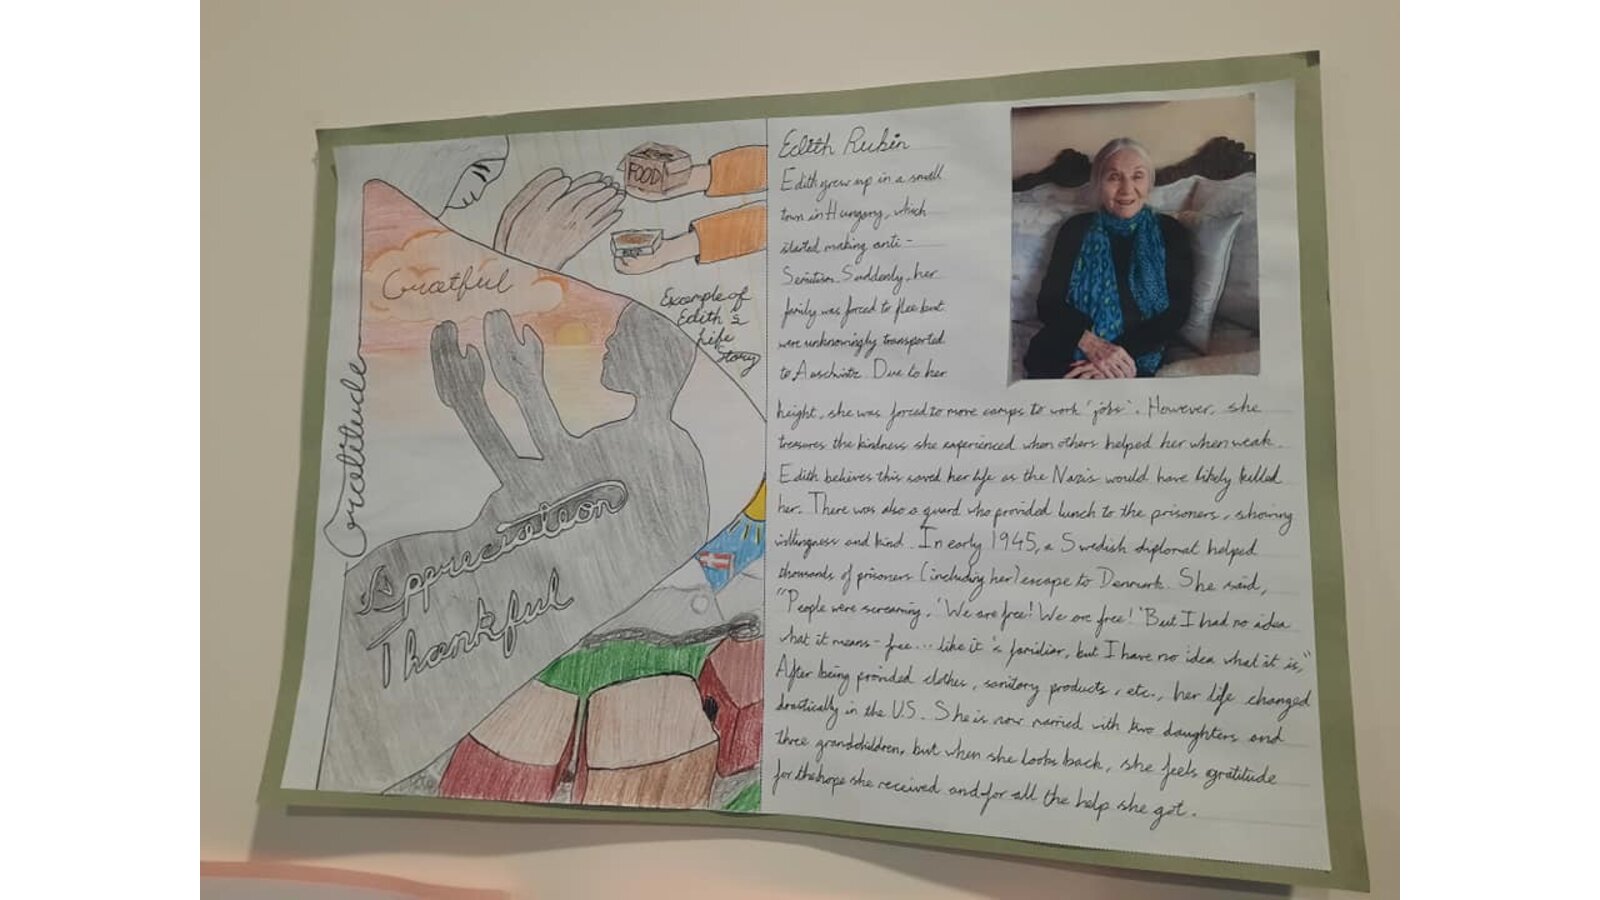 Gratitude
Grateful
Appreciation
Thankful
FOOD
Example of
Edith's
Life
Story
Edith Rubin
Edith grew up in a small
town in Hungary, which
started making anti-
Semitism. Suddenly, her
family was forced to flee but
were unknowingly transported
to Auschwitz. Due to her
height, she was forced to more camps to work 'jobs'. However, she
treasures the kindness she experienced when others helped her when weak.
Edith believes this saved her life as the Nazis would have likely killed
her. There was also a guard who provided lunch to the prisoners, showing
willingness and kind. In early 1945, a Swedish diplomat helped
thousands of prisoners (including her) escape to Denmark. She said,
"People were screaming, 'We are free! We are free!' But I had no idea
what it means - free... like it's familiar, but I have no idea what it is,"
After being provided clothes, sanitary products, etc., her life changed
drastically in the U.S. She is now married with two daughters and
three grandchildren, but when she looks back, she feels gratitude
for the hope she received and for all the help she got.